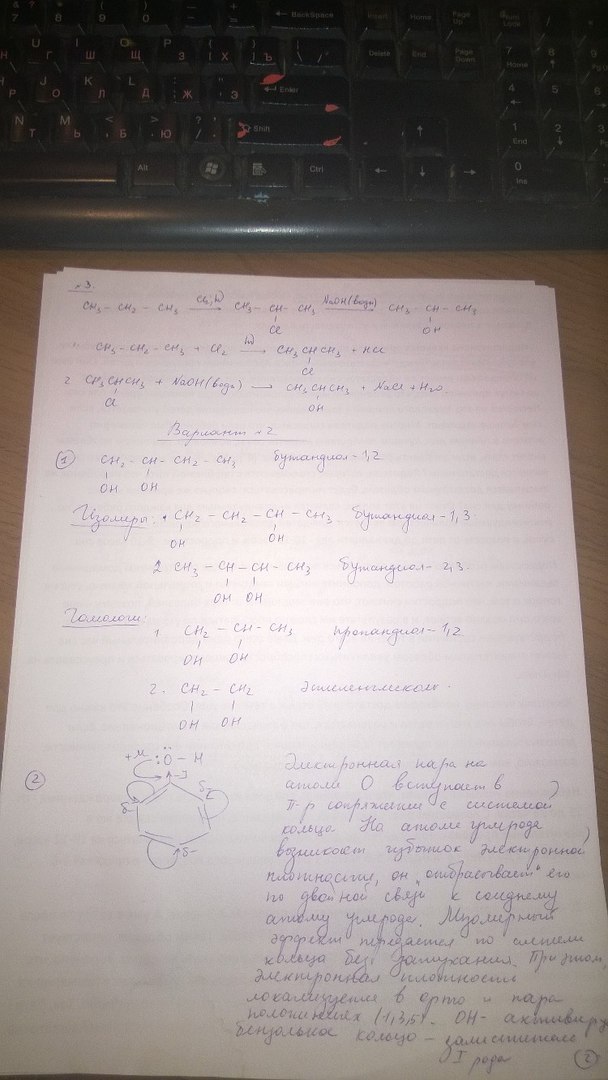 BackSpace
Insert
Home
Page Up
Num Lock
Delete
End
Page Down
Enter
Shift
Alt
Ctrl
Home
End
Ins
№3.
CH₃ – CH₂ – CH₃ Cl₂, hν → CH₃ – CH – CH₃ NaOH(водн) → CH₃ – CH – CH₃
Cl OH
1. CH₃–CH₂–CH₃ + Cl₂ hν → CH₃CHCH₃ + HCl
Cl
2. CH₃CHCH₃ + NaOH(водн) → CH₃CHCH₃ + NaCl + H₂O
Cl OH
Вариант №2
① CH₂ – CH – CH₂ – CH₃ бутандиол-1,2
OH OH
Изомеры: 1 CH₂ – CH₂ – CH – CH₃ бутандиол-1,3.
OH OH
2 CH₃ – CH – CH – CH₃ бутандиол-2,3.
OH OH
Гомологи:
1. CH₂ – CH – CH₃ пропандиол-1,2
OH OH
2. CH₂ – CH₂ этиленгликоль.
OH OH
② +M :Ö – H
-J
δ- δ-
δ-
Электронная пара на
атоме O вступает в
π-p сопряжение с системой
кольца. На атоме углерода
возникает избыток электронной
плотности, он "отбрасывает" его
по двойной связи к соседнему
атому углерода. Мезомерный
эффект передается по системе
кольца без затухания. При этом,
электронная плотность
локализуется в орто и пара
положениях (1,3,5). OH- активиру
бензольное кольцо – заместитель
I рода
②